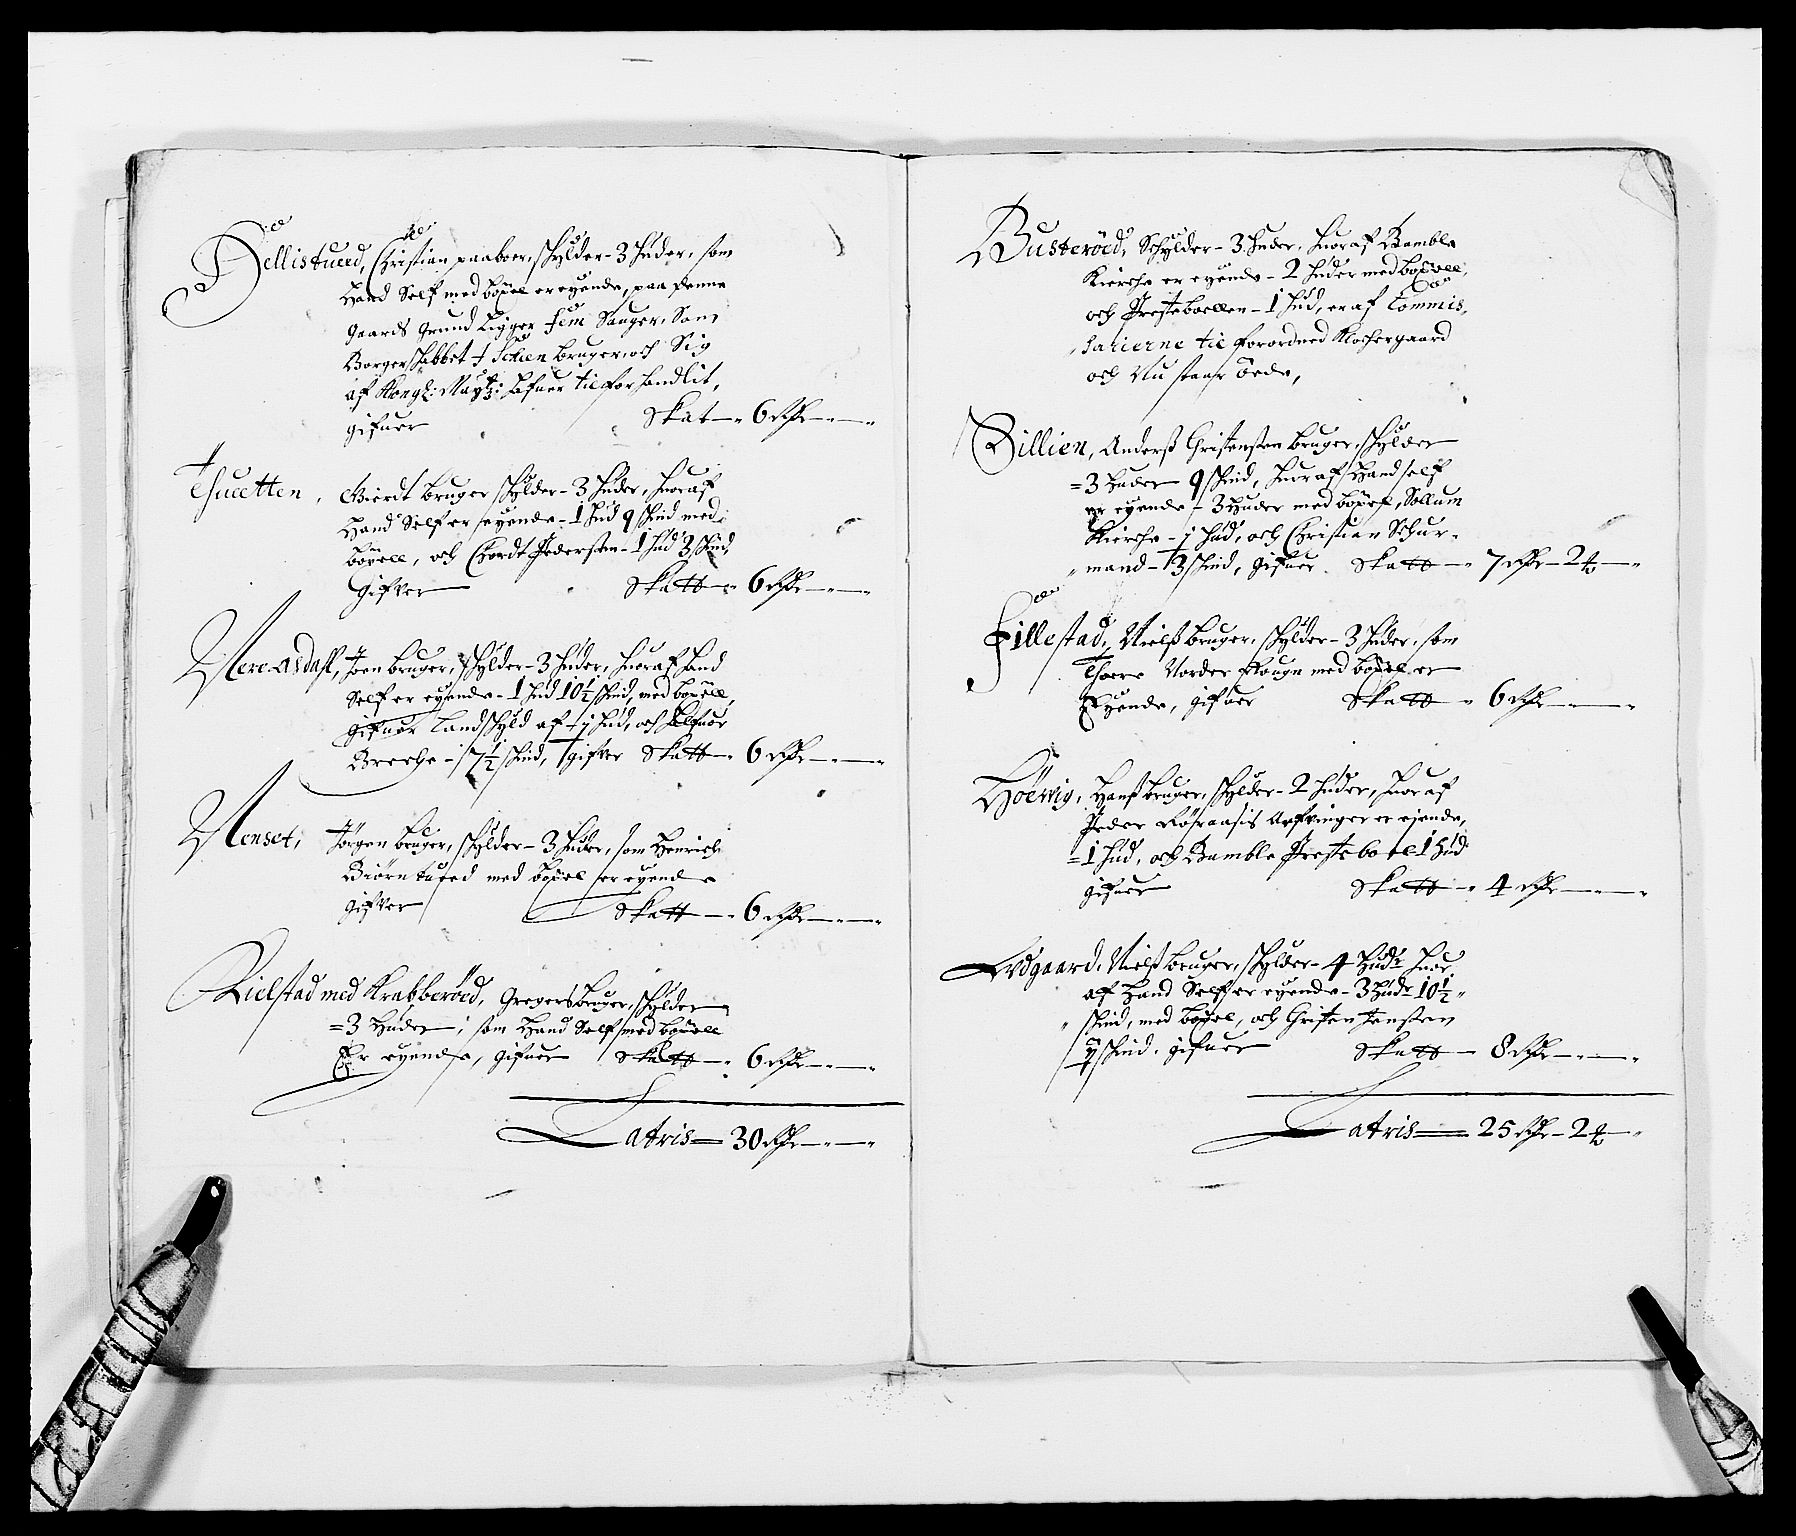 Hellistueed, Christian paaboer, schylder - 3 huder, som
Hand Self med böxel er eyende, paa denne
Gaards Grund Ligger fem Sauger, Som
Borgerschabbet i Schien bruger, och Sig
af Kongl: Maytz: Hafuer tilforhandlit,
gifuer Skat - 6 Rdr
Thuetten, Gierdt bruger schylder - 3 huder, huoraf
Hand Self er eyende - 1 hud 9 schind med
böxell, och Cordt Pedersen - 1 hud 3 schind,
Gifver Skatt - 6 Rdr
Nere-Asdahl, Joen bruger, schylder - 3 huder, huoraf hand
Self er eyende - 1 hud 10½ schind, med böxell,
gifuer Landschyld af - 1 hud, och
- 7½ schind, gifver Skatt - 6 Rdr
Nenset, Jörgen bruger, schylder - 3 huder, som Henrich
Biörntueed med böxel er eyende
gifver Skatt - 6 Rdr
Kielstad med Krabberöed, Gregers bruger, schylder
= 3 huder, som Hand Self med böxell
Er eyende, gifuer Skatt - 6 Rdr
Latris - 30 Rdr
Busteröed, Schylder - 3 huder, huoraf Bamble
Kierche er eyende - 2 huder med böxell,
och Presteboellen - 1 hud, er af Commis-
sarierne til forordned Klochergaard
och Nu staar öede,
Billien, Anderß Christensen bruger, schylder
= 3 huder 9 schind, huoraf Hand self
er eyende - 3 huder med böxel, Sollum
Kierche - 1 hud, och Christian Schur-
mand - 3 schind, gifuer Skatt - 7 Rdr - 2
Fillestad, Nielß bruger, schylder - 3 huder, som
Thore Norder med böxel er
Eyende, gifuer Skatt - 6 Rdr
Höewig, Hanß bruger, schylder - 2 huder, huoraf
Peder Arfvinger er eyende,
= 1 hud, och Bamble Presteboel - 1 hud
gifuer Skatt - 4 Rdr
Nielß bruger, schylder - 4 hudr huor
af Hand Self er eyende - 3 hudr 10½
schind, med böxel, och Christen Jensen
schind, gifuer Skatt - 8 Rdr
Latris - 25 Rdr - 2